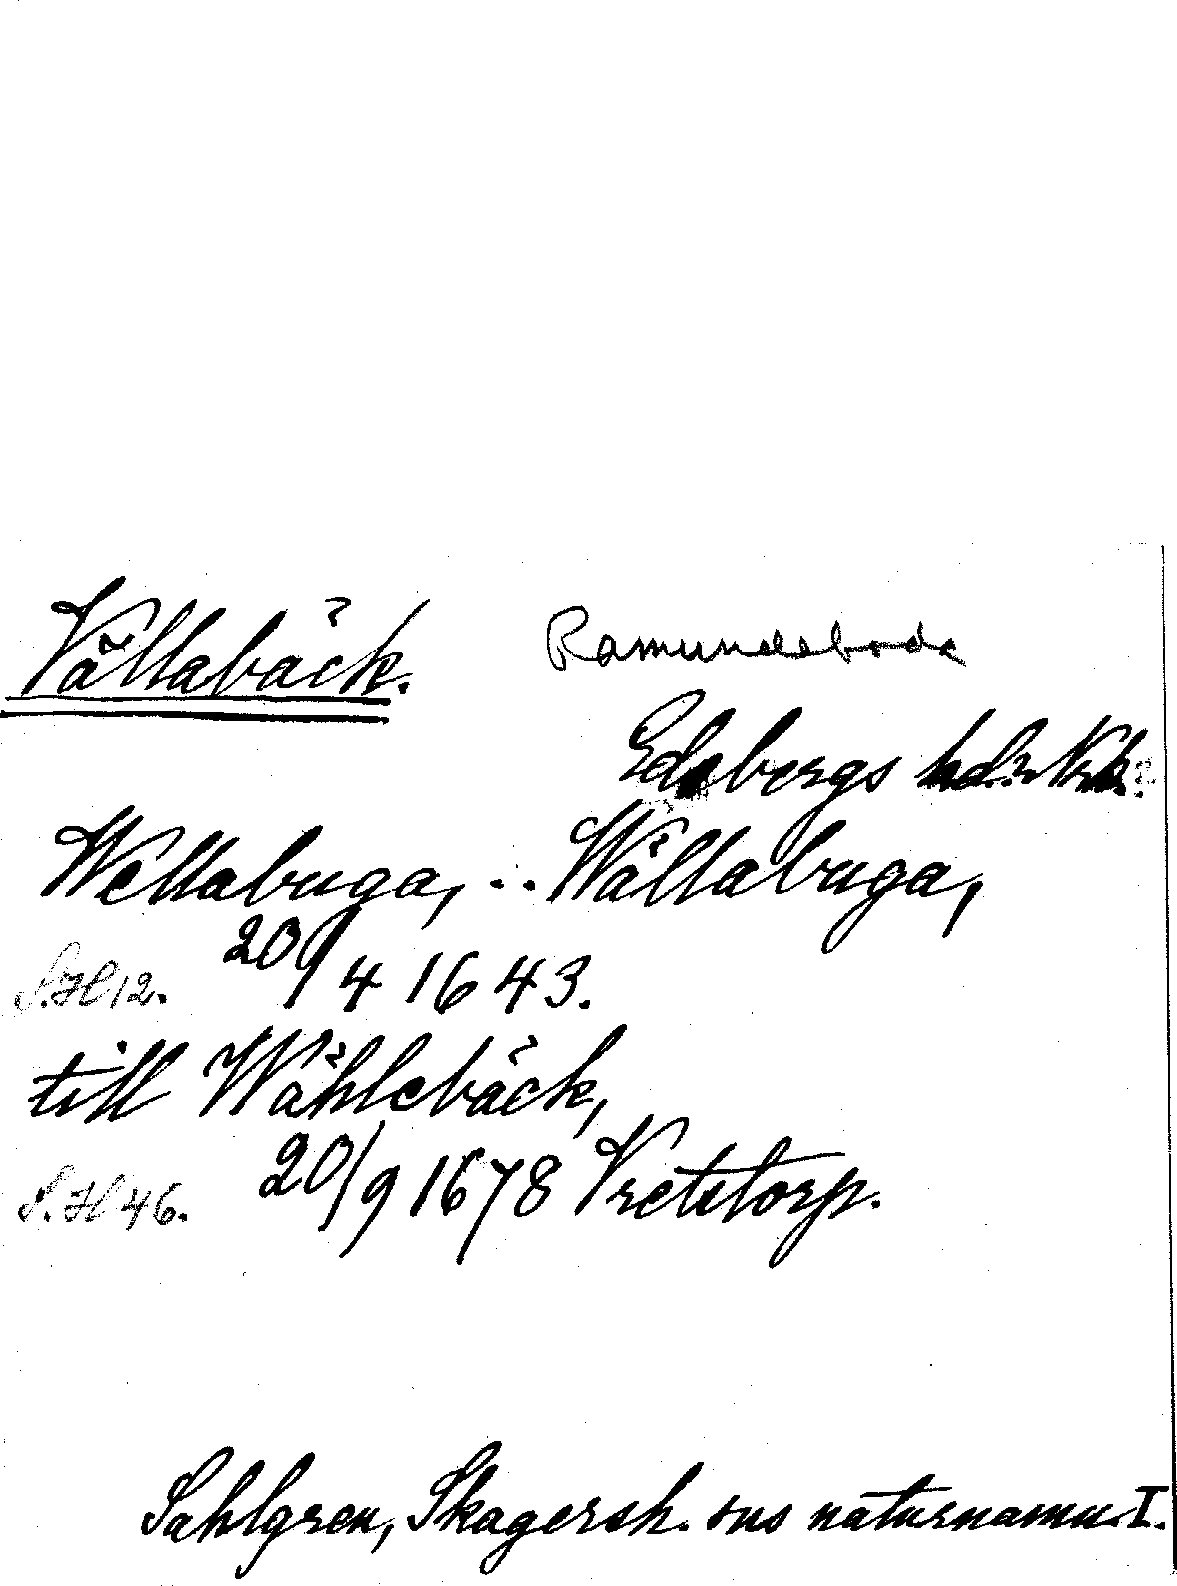 Vällabäck. Ramundeboda
Edsbergs hd. Nrk.
Wellabuga, .. Wällabuga,
S.H 12. 20/4 1643.
till Wähleböck,
S.H 46. 20/9 1678 Vretstorp.
Sahlgren, Skagersh. sns naturnamn I.